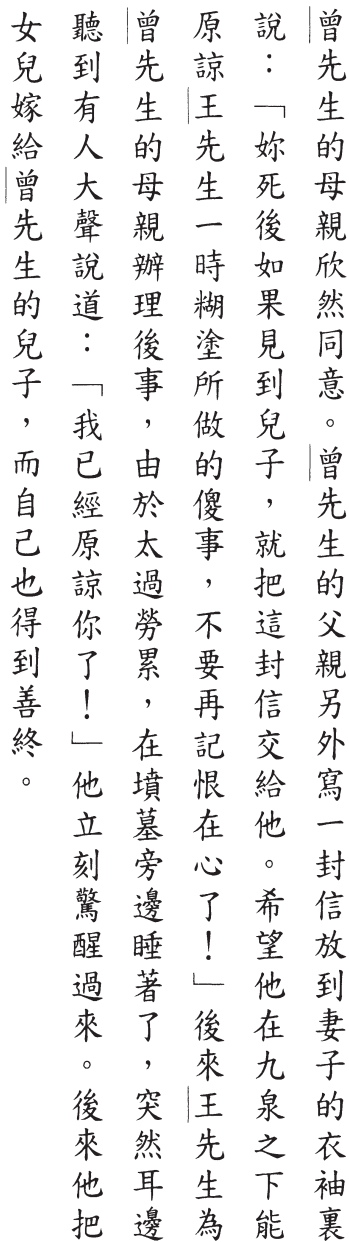 曾先生的母親欣然同意。曾先生的父親另外寫一封信放到妻子的衣袖裏
說：「妳死後如果見到兒子，就把這封信交給他。希望他在九泉之下能
原諒王先生一時糊塗所做的傻事，不要再記恨在心了！」後來王先生為
曾先生的母親辦理後事，由於太過勞累，在墳墓旁邊睡著了，突然耳邊
聽到有人大聲說道：「我已經原諒你了！」他立刻驚醒過來。後來他把
女兒嫁給曾先生的兒子，而自己也得到善終。